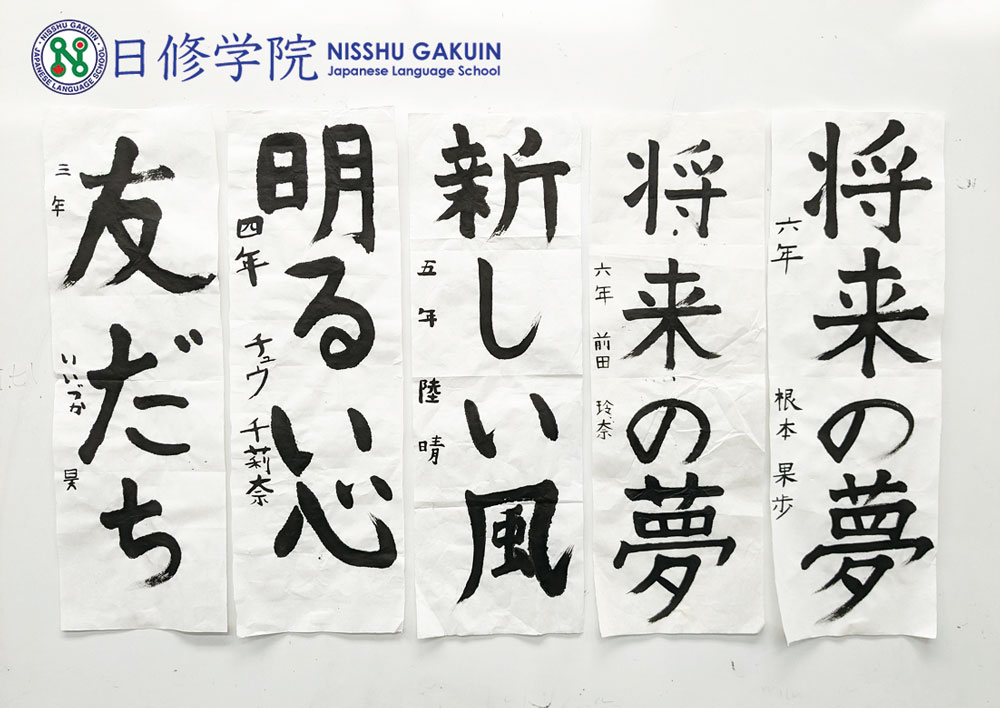 日修学院 NISSHU GAKUIN
Japanese Language School
NISSHU GAKUIN
JAPANESE LANGUAGE SCHOOL
将来の夢
六年 根本 果歩
将来の夢
六年 前田 玲奈
新しい風
五年 陸 晴
明るい心
四年 チュウ 千莉奈
友だち
三年 いいづか 昊